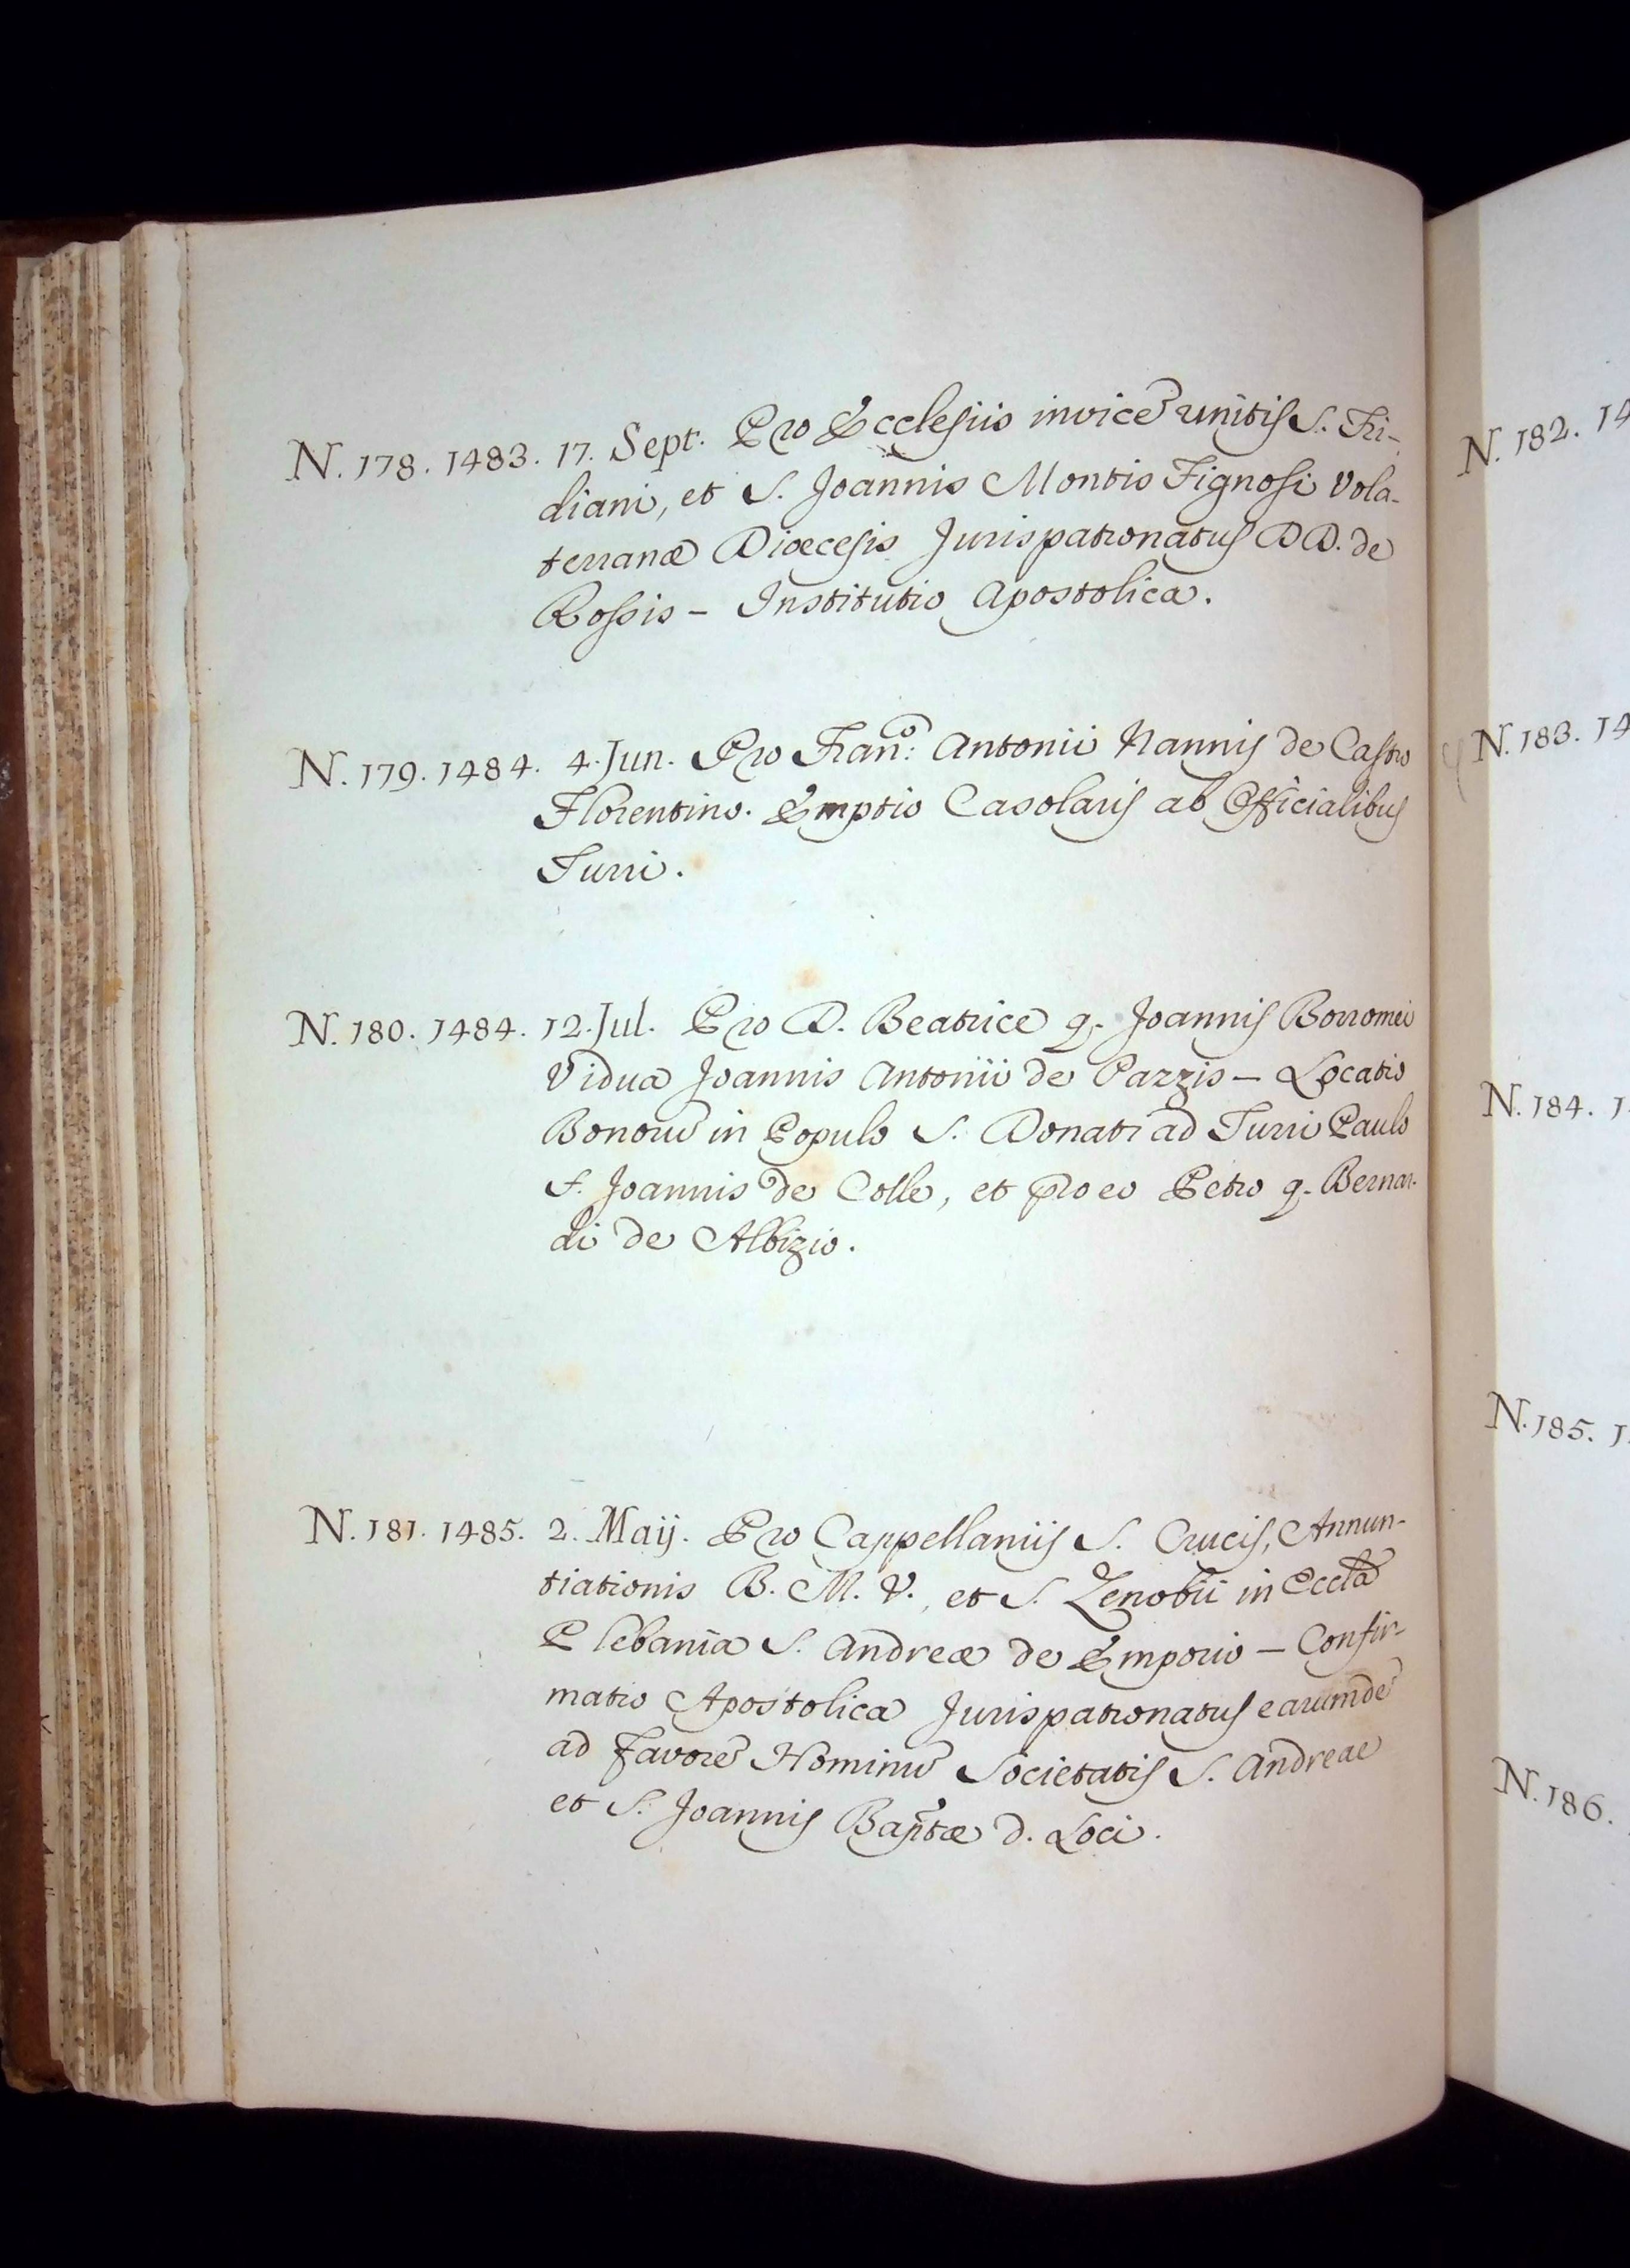 N. 178. 1483. 17. Sept. Pro Ecclesiis invicē unitis S. Fri-
diani, et S. Joannis Montis Tignosi Vola-
terranæ Diœcesis Jurispatronatus DD. de
Rossis – Institutio Apostolica.
N. 179. 1484. 4. Jun. Pro Franco: Antonii Nannis de Castro
Florentino. Emptio Casolaris ab Officialibus
Turri.
N. 180. 1484. 12. Jul. Pro D. Beatrice q. Joannis Borromei
Vidua Joannis Antonii de Pazzis – Locatio
Bonorū in Populo S. Donati ad Turri Paulo
f. Joannis de Colle, et pro eo Petro q. Bernar-
di de Albizio.
N. 181. 1485. 2. Maij. Pro Cappellaniis S. Crucis, Annun-
tiationis B. M. V., et S. Zenobii in Eccl̄a
Plebania S. Andreæ de Emporio – Confir-
matio Apostolica Jurispatronatus earumdē
ad favorē Hominū Societatis S. Andreae
et S. Joannis Bap̄tæ d. Loci.
N. 182. 14
N. 183. 14
N. 184. 1
N. 185. 1
N. 186.